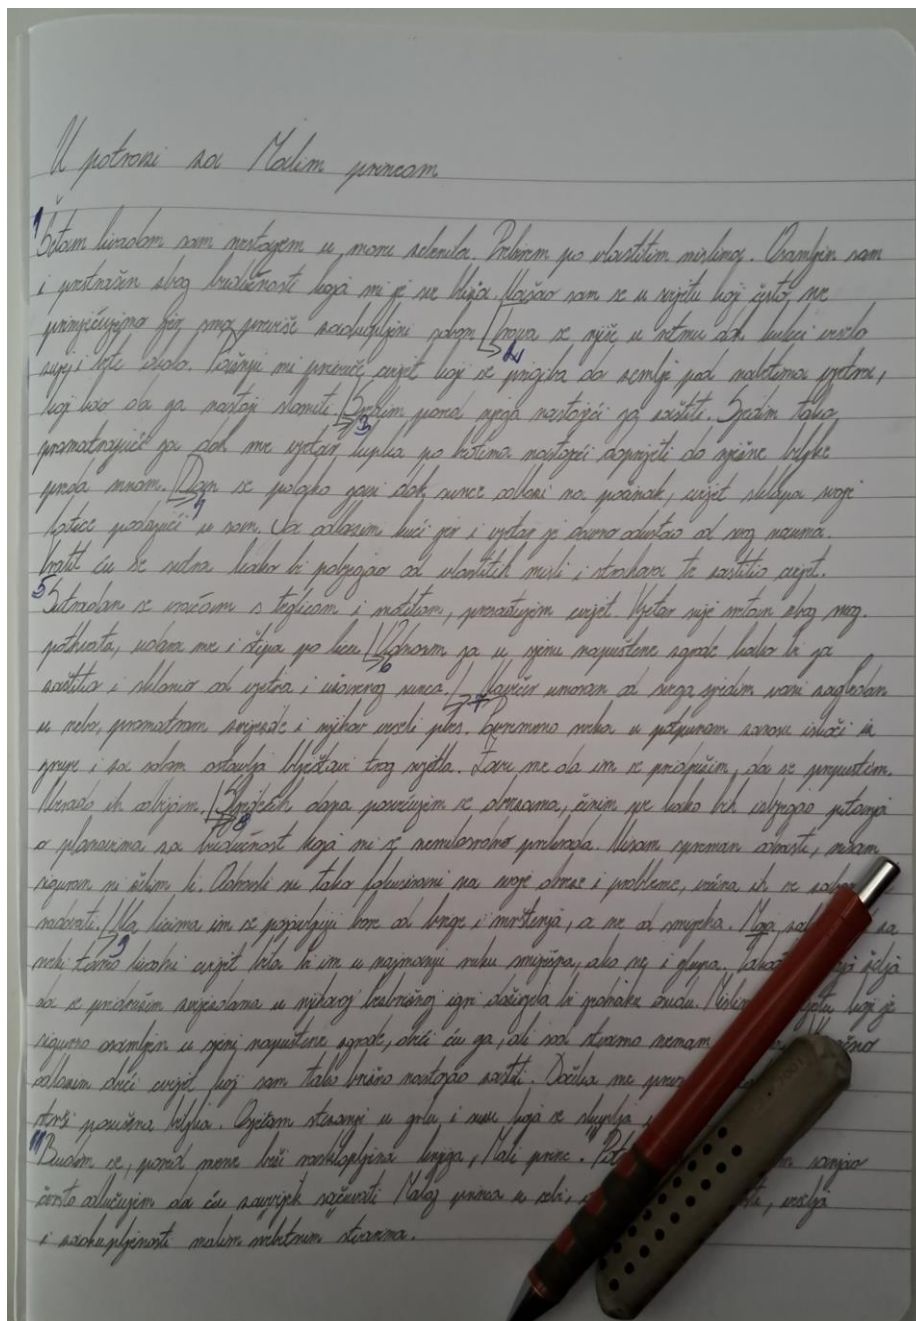 U potrazi za Malim princom
1 Šetam livadom sam nestajem u moru zelenila. Prebirem po vlastitim mislima. Osamljen sam
i prestrašen zbog budućnosti koja mi je sve bliža. Našao sam se u svijetu koji često ne
primjećujemo jer smo previše zaokupljeni sobom. Trava se njiše u ritmu dok kukci veselo
2
zuje i lete okolo. Pažnju mi privuče cvijet koji se prigiba do zemlje pod naletima vjetra,
koji kao da ga nastoji slomiti. Sjedim pored njega nastojeći ga zaštiti. Sjedim tako
3
promatrajući ga dok me vjetar šiba po leđima nastojeći doprijeti do nježne biljke
preda mnom. Dan se polako gasi dok sunce odlazi na počinak, cvijet sklapa svoje
4
latice padajući u san. Ja odlazim kući jer i vjetar je davno odustao od svog nauma.
Vratit ću se sutra kako bi pobjegao od vlastitih misli i strahova te zaštitio cvijet.
5 Sutradan se vraćam s teglicom i motikom, presađujem cvijet. Vjetar nije sretan zbog mog
pothvata, udara me i štipa po licu. Odnosim ga u sjenu napuštene zgrade kako bi ga
6
zaštitio i sklonio od vjetra i užarenog sunca. Navečer umoran od svega sjedim vani zagledan
7
u nebo, promatram zvijezde i njihov veseli ples. Povremeno neka u potpunom zanosu iskoči iz
grupe i za sobom ostavlja blještavi trag svjetla. Zove me da im se pridružim, da se prepustim.
Nerado ih odbijam. Sljedećih dana posvećujem se obvezama, činim sve kako bih izbjegao pitanja
8
o planovima za budućnost koja mi se nemilosrdno približava. Nisam spreman odrasti, nisam
siguran ni želim li. Odrasli su tako fokusirani na svoje obveze i probleme,
Na licima im se pojavljuju bore od brige i mrštenja, a ne od smijeha. Moja
9
neki tamo livadni cvijet bila bi im u najmanju ruku smiješna, ako ne i glupa. želja
da se pridružim zvijezdama u njihovoj bezbrižnoj igri doživjela bi jednaku osudu. koji je
sigurno osamljen u sjeni napuštene zgrade, obići ću ga, ali sad stvarno nemam
odlazim obići cvijet koji sam tako brižno nastojao zaštiti. Dočeka me
biljka. Osjećam stezanje u grlu i suzu koja se skuplja
Budim se, pored mene leži rasklopljena knjiga, Mali princ. sanjao
čvrsto odlučujem da ću zauvijek sačuvati Malog princa u sebi, veselja
i zaokupljenosti malim nebitnim stvarima.